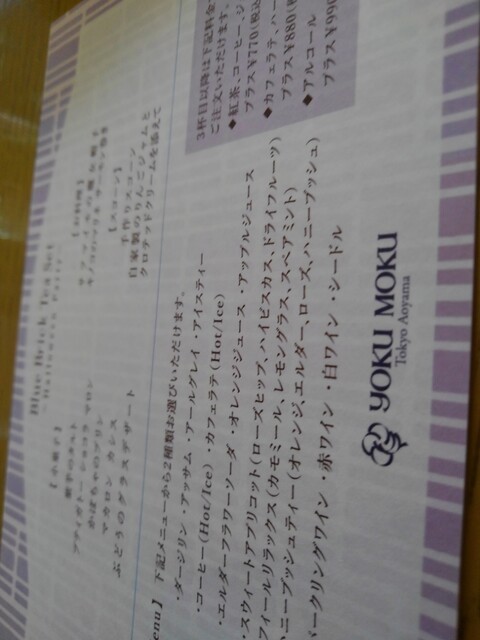 Blue Brick Tea Set
~ Halloween Party ~
【小菓子】
プティガトーショコラ マロン
かぼちゃのプリン
マカロン カシス
ぶどうのグラスデザート
【スコーン】
手作りスコーン
自家製のりんごジャムと
クロテッドクリームを添えて
enu】 下記メニューから2種類お選びいただけます。
・ダージリン ・アッサム ・アールグレイ ・アイスティー
・コーヒー(Hot/Ice) ・カフェラテ(Hot/Ice)
・エルダーフラワーソーダ ・オレンジジュース ・アップルジュース
・スウィートアプリコット(ローズヒップ、ハイビスカス、ドライフルーツ)
フィールリラックス(カモミール、レモングラス、スペアミント)
ニーブッシュティー(オレンジ、エルダー、ローズ、ハニーブッシュ)
ークリングワイン ・赤ワイン ・白ワイン ・シードル
3杯目以降は下記料金
ご注文いただけます。
◆紅茶、コーヒー、ジ
プラス¥770(税込
◆カフェラテ、ハー
プラス¥880(税
◆アルコール
プラス¥990
YOKU MOKU
Tokyo Aoyama